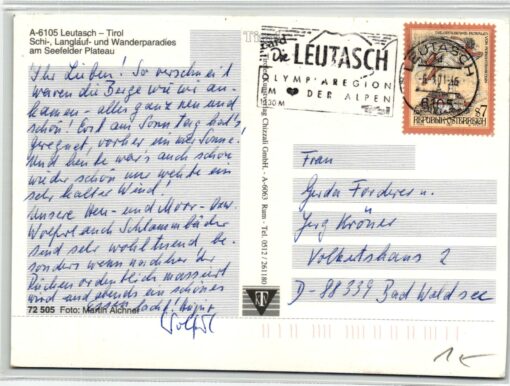 A-6105 Leutasch – Tirol
Schi-, Langlauf- und Wanderparadies
am Seefelder Plateau
Ihr Lieben! So verschneit
waren die Berge wie wir an-
kamen - alles ganz neu und
schön! Erst am Sonntag hat's
geregnet, vorher ein Sonne!
Und heute war's auch schön
wieder schön nur wehte ein
sehr kalter Wind!
Unsere Heu- und Moor- bzw
Wolferl auch Schlammbäder
sind sehr wohltuend be-
sonders wenn nachher der
Rücken ordentlich massiert
wird und abends ein schönes
Essen lockt!
Wolferl
72 505 Foto: Martin Aichner
Chizzali GmbH. - A-6063 Rum - Tel. 0512 / 261180
Die LEUTASCH
OLYMPIAREGION
IM ♥ DER ALPEN
1130 M
LEUTASCH
6105
S 7
REPUBLIK ÖSTERREICH
Frau
Gerda Forderer u.
Jörg Kröner
Volkertshaus 2
D-88339 Bad Waldsee
1€